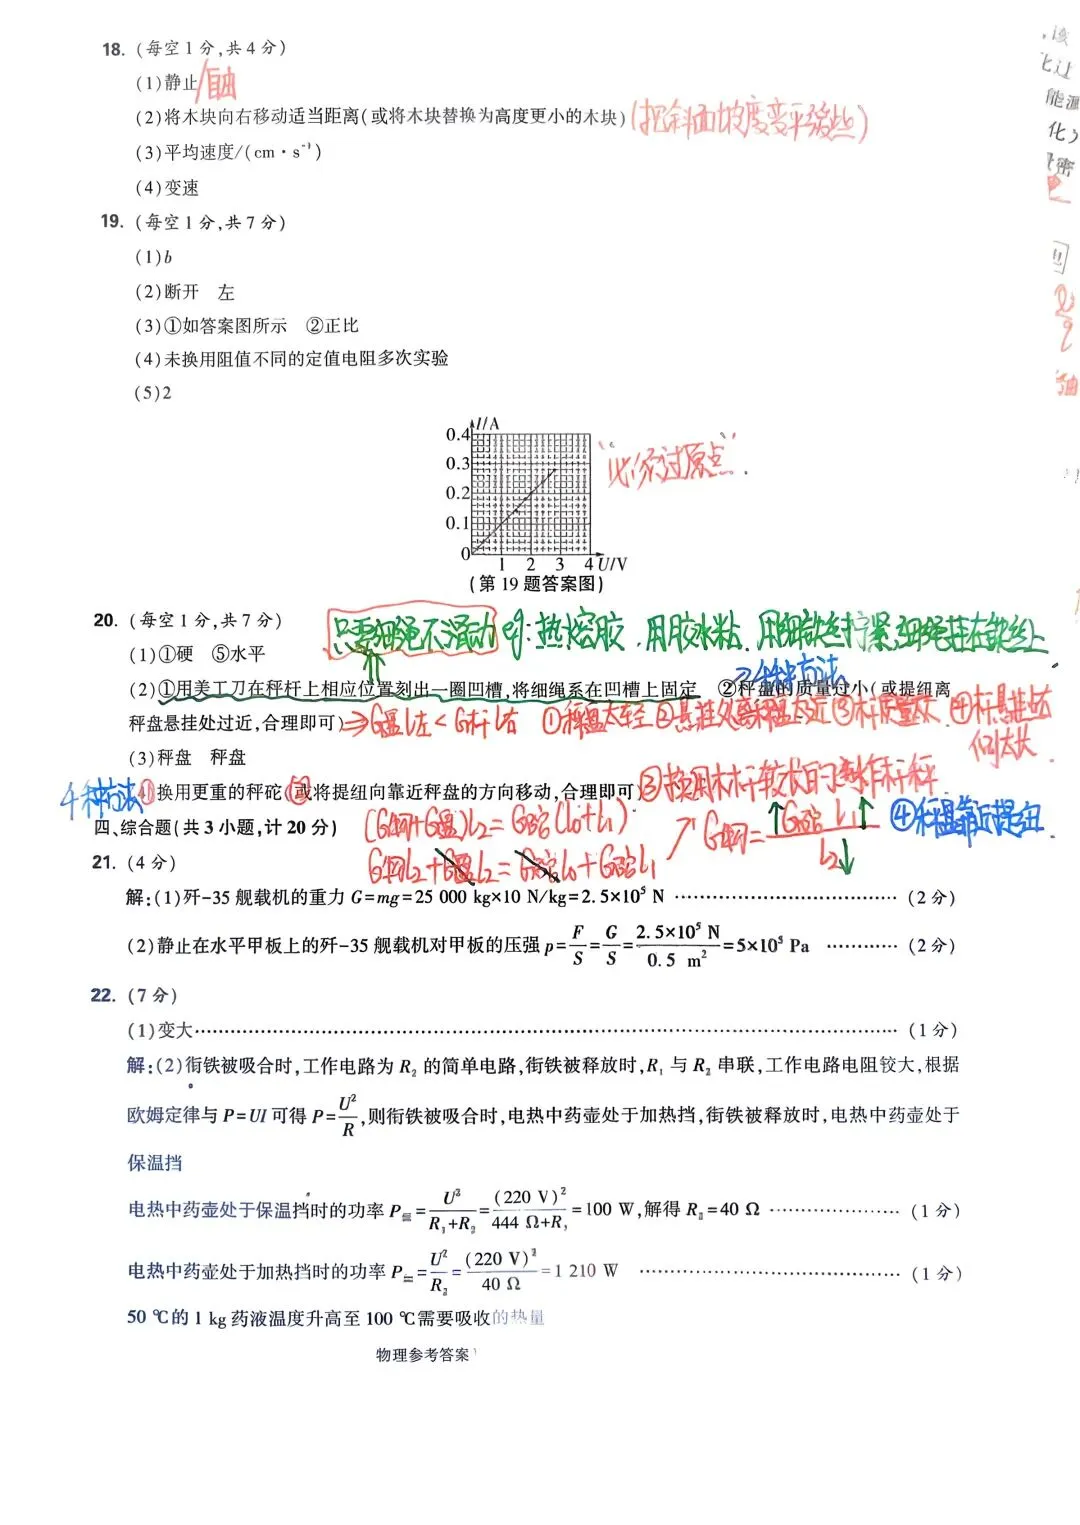 18. (每空1分,共4分)
(1)静止/自由
(2)将木块向右移动适当距离(或将木块替换为高度更小的木块)(把斜面坡度变平缓些)
(3)平均速度/(cm·s⁻¹)
(4)变速
19. (每空1分,共7分)
(1)b
(2)断开 左
(3)①如答案图所示 ②正比
(4)未换用阻值不同的定值电阻多次实验
(5)2
I/A
0.4
0.3
0.2
0.1
0
1 2 3 4 U/V
"必须过原点".
(第19题答案图)
20. (每空1分,共7分) 只要细绳不滑动 eg:热熔胶,用胶水粘.用细铁丝拧紧,细绳挂在铁丝上
(1)①硬 ⑤水平
⇒4种方法
(2)①用美工刀在秤杆上相应位置刻出一圈凹槽,将细绳系在凹槽上固定 ②秤盘的质量过小(或提纽离
秤盘悬挂处过近,合理即可)⇒G盘l左<G杆l右 ①秤盘太轻②悬挂处离秤盘太近③杆质量大.④杆悬挂点右侧太长.
(3)秤盘 秤盘
4种方法①换用更重的秤砣(②或将提纽向靠近秤盘的方向移动,合理即可)③换用木杆较长的制作杆秤
四、综合题(共3小题,计20分) (G物+G盘)l₂=G砣(l₀+l₁)
G物l₂+G盘l₂=G砣l₀+G砣l₁ ↗ G物=G砣l₁↑/l₂↓ ④秤盘靠近提纽.
21. (4分)
解:(1)歼-35舰载机的重力G=mg=25 000 kg×10 N/kg=2.5×10⁵ N …… (2分)
(2)静止在水平甲板上的歼-35舰载机对甲板的压强p=F/S=G/S=2.5×10⁵ N/0.5 m²=5×10⁵ Pa …… (2分)
22. (7分)
(1)变大…… (1分)
解:(2)衔铁被吸合时,工作电路为R₂的简单电路,衔铁被释放时,R₁与R₂串联,工作电路电阻较大,根据
欧姆定律与P=UI可得P=U²/R,则衔铁被吸合时,电热中药壶处于加热挡,衔铁被释放时,电热中药壶处于
保温挡
电热中药壶处于保温挡时的功率P=U²/(R₁+R₂)=(220 V)²/(444 Ω+R₂)=100 W,解得R₂=40 Ω …… (1分)
电热中药壶处于加热挡时的功率P=U²/R₂=(220 V)²/40 Ω=1 210 W …… (1分)
50 ℃的1 kg药液温度升高至100 ℃需要吸收的热量
物理参考答案
能源